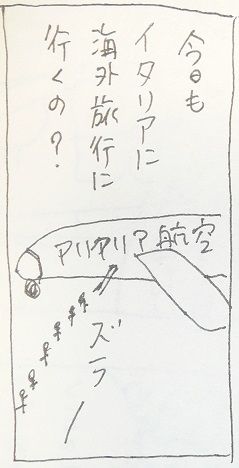 今日も
イタリアに
海外旅行に
行くの？
アリアリア航空
ズラー